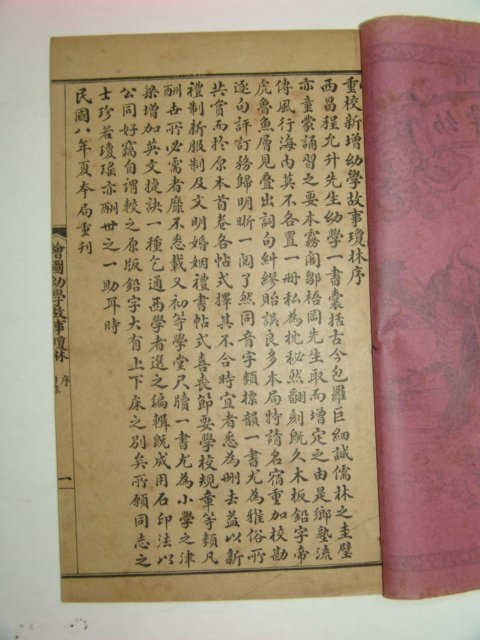 重校新增幼學故事瓊林序
西昌程允升先生幼學一書囊括古今包羅巨細誠儒林之圭璧
亦童蒙誦習之要本霧閣鄒梧岡先生取而增定之由是鄉塾流
傳風行海內莫不各置一冊私為枕秘然翻刻既久木板鉛字帝
虎魯魚層見叠出詞句糾繆貽誤良多本局特請名宿重加校勘
逐句評訂務歸明晰一閱了然同音字類標韻一書尤為雅俗所
共賞而於原本首卷各帖式擇其不合時宜者悉為刪去益以新
禮制新服制及文明婚姻禮書帖式喜喪節要學校規章等類凡
酬世所必需者靡不悉載又初等學堂尺牘一書尤為小學之津
梁增加英文捷訣一種乞通西學者選之編輯既成用石印法以
公同好竊自謂較之原版鉛字大有上下床之別矣所願同志之
士珍若瓊瑤亦酬世之一助耳時
民國八年夏本局重刊
會圖幼學故事瓊林
序
一